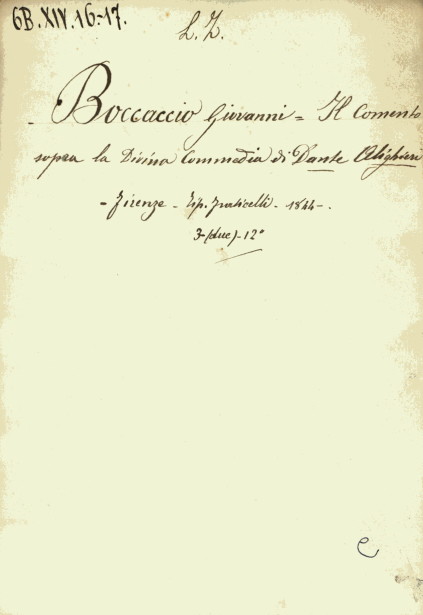 6B.XIV.16-17.
L. Z.
- Boccaccio Giovanni = Il Comento
sopra la Divina Commedia di Dante Alighieri
- Firenze - Tip. Fraticelli - 1844 - .
3 - (due) - 12°
e